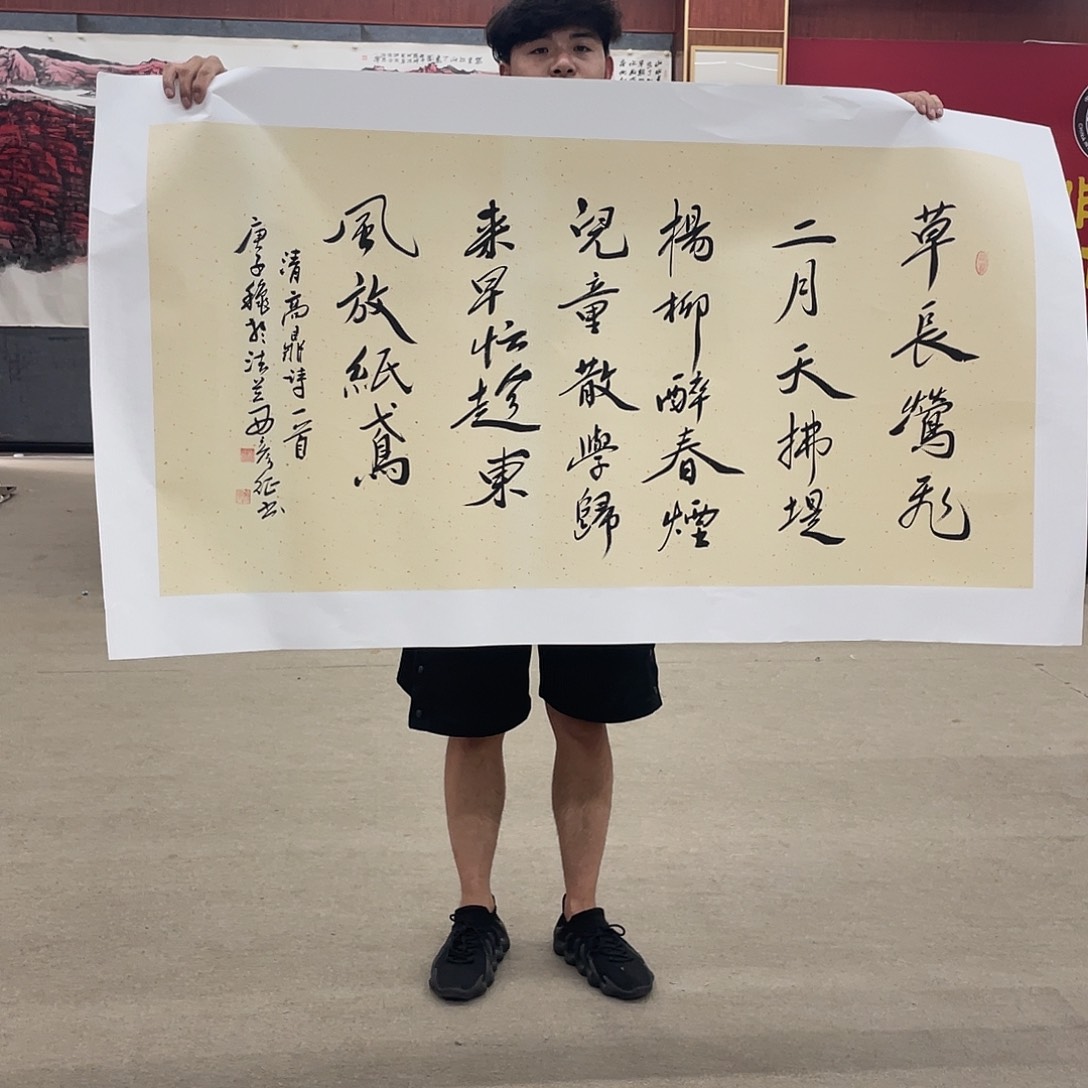 草長鶯飛
二月天拂堤
楊柳醉春煙
兒童散學歸
来早忙趁東
風放紙鳶
清高鼎詩一首
庚子穐於法兰西彦征书